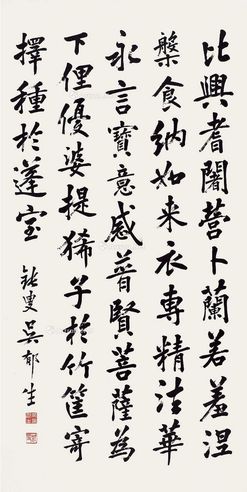 比興耆闍薝卜蘭若羞涅
槃食納如来衣專精法華
永言寶意感普賢菩薩為
下俚優婆提狶子於竹筐寄
擇種於蓬室
鈍叟吳郁生